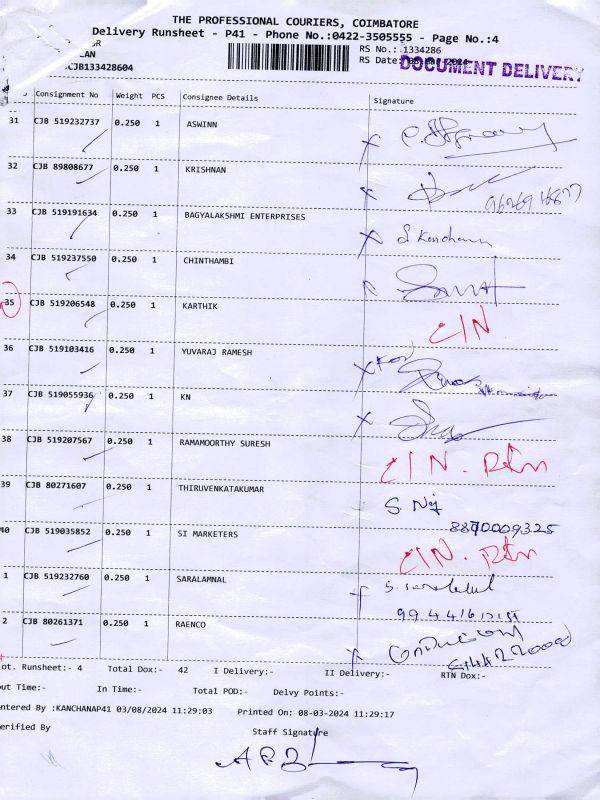 THE PROFESSIONAL COURIERS, COIMBATORE
Delivery Runsheet - P41 - Phone No.:0422-3505555 - Page No.:4
RS No.:1334286
RS Date:
DOCUMENT DELIVERY
CJB133428604
Consignment No Weight PCS Consignee Details Signature
31 CJB 519232737 0.250 1 ASWINN
32 CJB 89808677 0.250 1 KRISHNAN
33 CJB 519191634 0.250 1 BAGYALAKSHMI ENTERPRISES
34 CJB 519237550 0.250 1 CHINTHAMBI
35 CJB 519206548 0.250 1 KARTHIK C/N
36 CJB 519103416 0.250 1 YUVARAJ RAMESH
37 CJB 519055936 0.250 1 KN
38 CJB 519207567 0.250 1 RAMAMOORTHY SURESH C/N. Rtn
39 CJB 80271607 0.250 1 THIRUVENKATAKUMAR
8870009325
40 CJB 519035852 0.250 1 SI MARKETERS C/N. Rtn
1 CJB 519232760 0.250 1 SARALAMNAL
2 CJB 80261371 0.250 1 RAENCO
ot. Runsheet:- 4 Total Dox:- 42 I Delivery:- II Delivery:- RTN Dox:-
out Time:- In Time:- Total POD:- Delvy Points:-
ntered By :KANCHANAP41 03/08/2024 11:29:03 Printed On: 08-03-2024 11:29:17
erified By Staff Signature